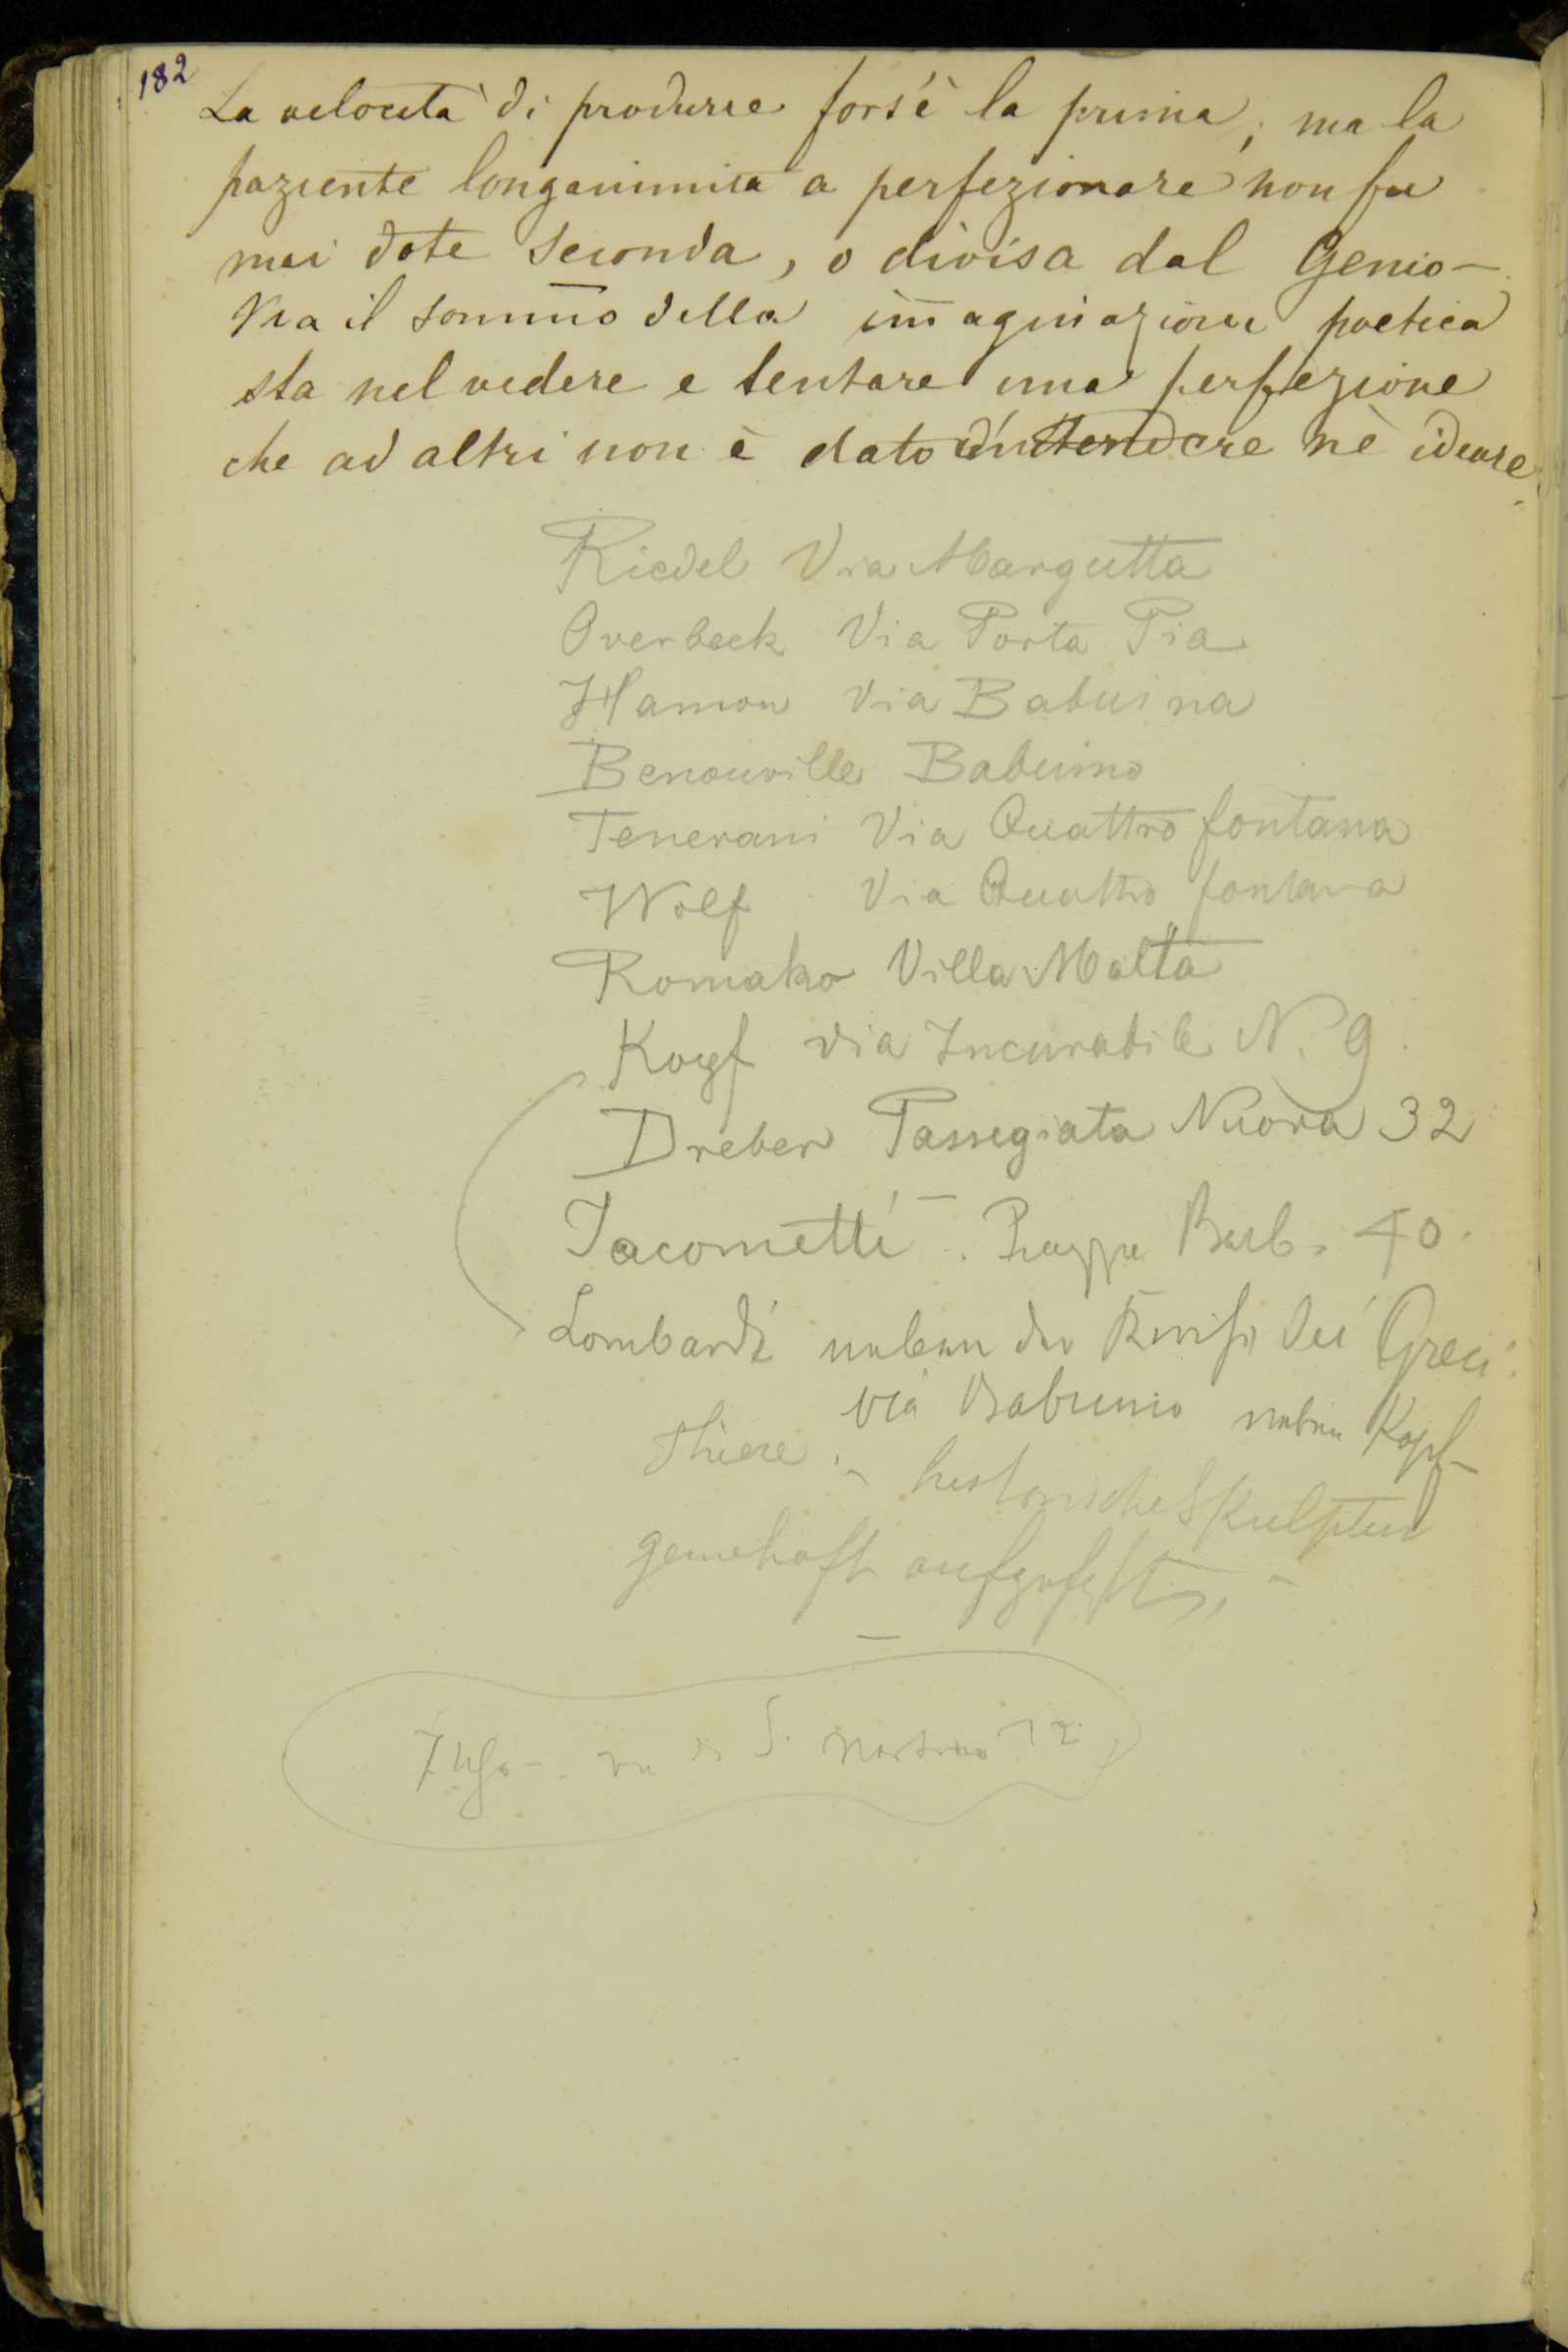 182
La velocità di produrre fors'è la prima, ma la
paziente longanimità a perfezionare non fu
mai dote seconda, o divisa dal Genio —
Ma il sommo della immaginazione poetica
sta nel vedere e tentare una perfezione
che ad altri non è dato d'intendere nè ideare.
Riedel Via Margutta
Overbeck Via Porta Pia
Hamon Via Babuina
Benouville Babuino
Tenerani Via Quattro fontana
Wolf Via Quattro fontana
Romako Villa Malta
Kopf via Incurabile N. 9
Dreber Passegiata Nuova 32
Jacometti – Piazza Barb. 40.
Lombardi neben der Dei Greci.
Via Babuino neben Kopf –
Thiere. – historische Skulptur
genrehaft aufgefaßt, –
S. Martino 12